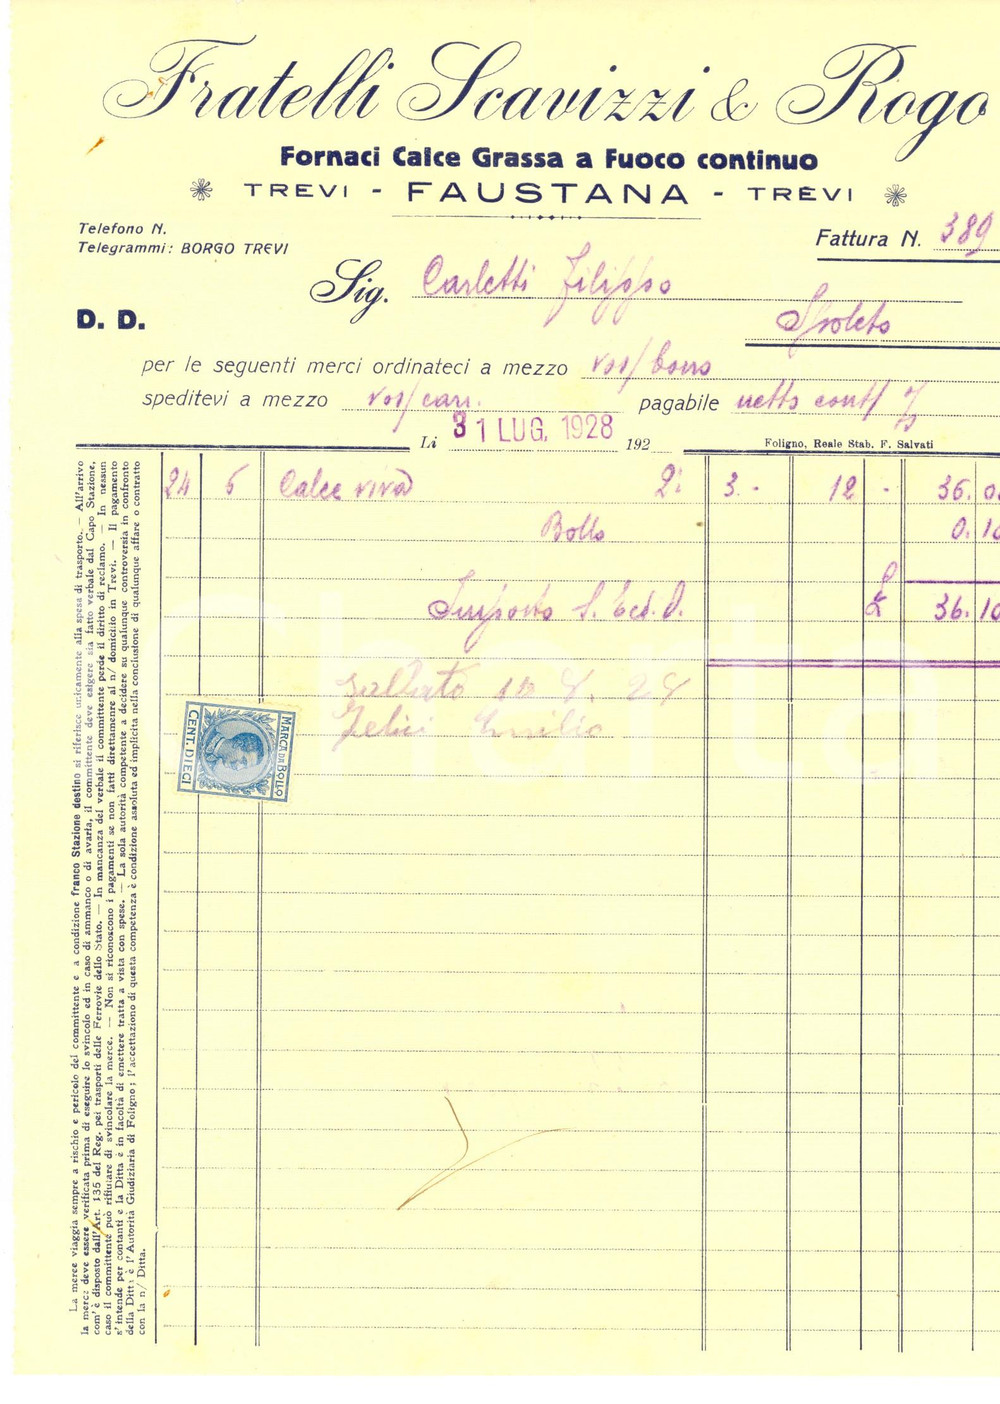 Fratelli Scavizzi & Rogo
Fornaci Calce Grassa a Fuoco continuo
TREVI - FAUSTANA - TREVI
Telefono N.
Telegrammi: BORGO TREVI
Fattura N. 389
Sig. Carletti Filippo
Spoleto
D. D.
per le seguenti merci ordinateci a mezzo vos/ buono
speditevi a mezzo vos/ carr. pagabile netto cont/
Li 31 LUG. 1928 192
Foligno, Reale Stab. F. Salvati
24 6 Calce viva 2: 3.- 12 - 36. 0
Bollo 0.10
Importo S. Ecd. O. £ 36.10
Saldato
Felici Emilio
MARCA DA BOLLO
CENT. DIECI
La merce viaggia sempre a rischio e pericolo del committente e a condizione franco Stazione destino si riferisce unicamente alla spesa di trasporto. — All'arrivo
la merce deve essere verificata prima di eseguire lo svincolo ed in caso di ammanco o di avaria, il committente deve esigere sia fatto verbale dal Capo Stazione,
com'è disposto dall'Art. 135 del Reg. pei trasporti delle Ferrovie dello Stato. — In mancanza del verbale il committente perde il diritto di reclamo. — In nessun
caso il committente può rifiutare di svincolare la merce. — Non si riconoscono i pagamenti se non fatti direttamente al n/ domicilio in Trevi. — Il pagamento
s'intende per contanti e la Ditta è in facoltà di emettere tratta a vista con spese. — La sola autorità competente a decidere su qualunque controversia in confronto
della Ditta è l'Autorità Giudiziaria di Foligno; l'accettazione di questa competenza è condizione assoluta ed implicita nella conclusione di qualunque affare o contratto
con la n/ Ditta.